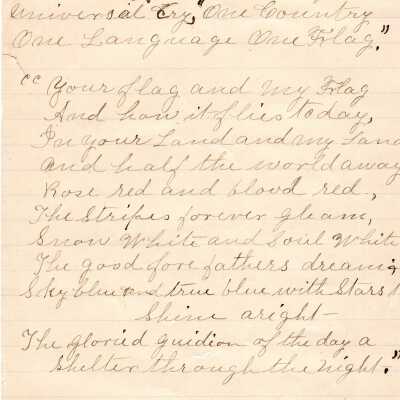 Universal Cry, "One Country
One Language One Flag."
"Your flag and my Flag
And how it flies today,
In your Land and my Land
And half the world away
Rose red and blood red,
The Stripes forever gleam,
Snow White and Soul White
The good fore fathers dream;
Sky blue and true blue with Stars
Shine aright—
The gloried guidion of the day a
Shelter through the night."